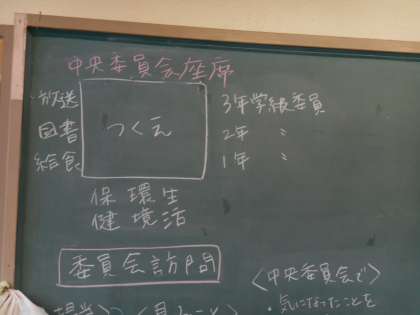 中央委員会座席
放送
図書
給食
つくえ
3年学級委員
2年 〃
1年 〃
保 環 生
健 境 活
委員会訪問
〈中央委員会で〉
・気になったことを